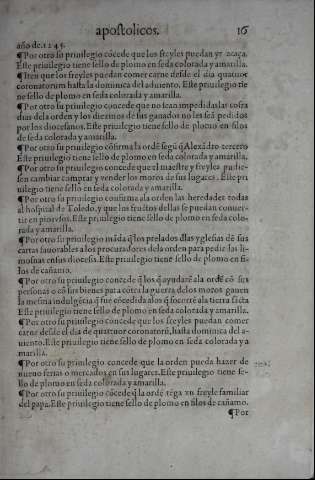 apostolicos. 16
año de.1245.
¶Por otro su priuilegio cõcede que los freyles puedan yr a caça.
Este priuilegio tiene sello de plomo en seda colorada y amarilla.
que los freyles puedan comer carne desde el dia quatuor
coronatorum hasta la dominica del aduiento. Este priuilegio tie
ne sello de plomo en seda colorada y amarilla.
¶Por otro su priuilegio concede que no sean impedidas las cofra
dias dela orden y los diezmos de sus ganados no les seã pedidos
por los diocesanos. Este priuilegio tiene sello de plomo en filos
de seda colorada y amarilla.
¶Por otro su priuilegio cõfirma la ordẽ segũ q̃ Alexãdro tercero
Este priuilegio tiene sello de plomo en seda colorada y amarilla.
¶Por otro su priuilegio concede que el maestre y freyles pudie-
sen cambiar comprar y vender los moros de sus lugares. Este pri
uilegio tiene sello en seda colorada y amarilla.
¶Por otro su priuilegio confirma ala orden las heredades todas
al hospital de Toledo, y que los fruttos dellas se puedan conuer-
tir en piovsos. Este priuilegio tiene sello de plomo en seda colo-
rada y amarilla.
¶Por otro su priuilegio mãda q̃ los prelados dlas yglesias dẽ sus
cartas fauorables alos procuradores dela orden para pedir las li-
mosnas en sus diocesis. Este priuilegio tiene sello de plomo en fi-
los de cañamo.
¶Por otro su priuilegio concede q̃ los q̃ ayudarẽ ala ordẽ cõ sus
personas o cõ sus bienes para cõtra la guerra delos moros ganen
la mesma indulgẽcia q̃ fue cõcedida alos q̃ socorrẽ ala tierra sãcta
Este priuilegio tiene sello de plomo en seda colorada y amarilla.
¶Por otro su priuilegio concede que los freyles puedan comer
carne desde el dia de quatuor coronatorũ, hasta dominica del a-
uiento. Este priuilegio tiene sello de plomo en seda colorada y a-
marilla.
¶Por otro su priuilegio concede que la orden pueda hazer de
nueuo ferias o mercados en sus lugares. Este priuilegio tiene se-
llo de plomo en seda colorada y amarilla.
¶Por otro su priuilegio cõcede q̃ la ordẽ tẽga vn freyle familiar
del papa. Este priuilegio tiene sello de plomo en filos de cañamo.
¶Por